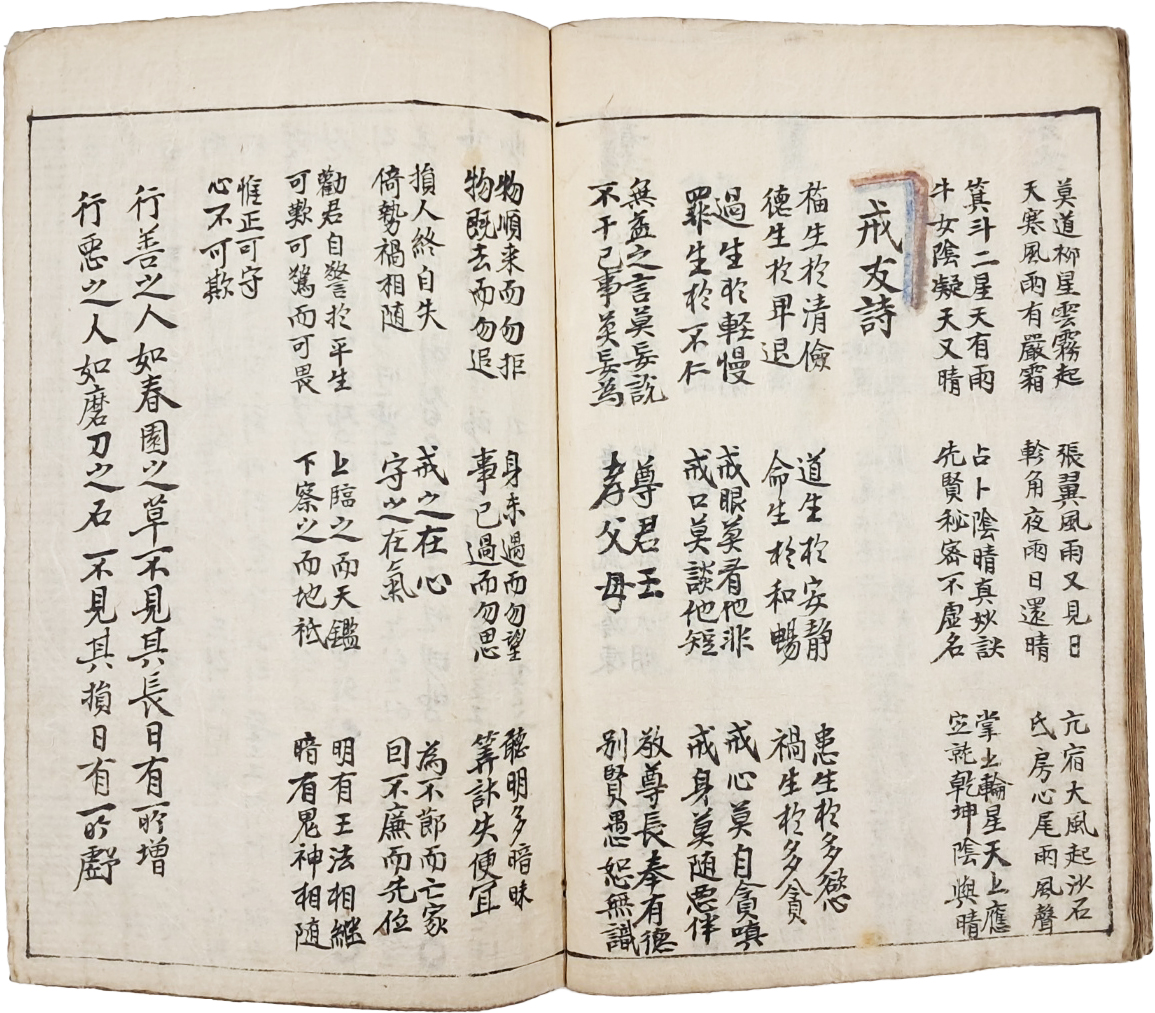 莫道柳星雲霧起
天寒風雨有嚴霜
張翼風雨又見日
軫角夜雨日還晴
亢宿大風起沙石
氐房心尾雨風聲
箕斗二星天有雨
牛女陰凝天又晴
占卜陰晴真妙訣
先賢秘密不虛名
掌上輪星天上應
定託乾坤陰與晴
戒友詩
福生於清儉
德生於卑退
道生於安静
命生於和暢
患生於多慾
禍生於多貪
過生於軽慢
罪生於不仁
戒眼莫看他非
戒口莫談他短
戒心莫自貪嗔
戒身莫随悪伴
無益之言莫妄説
不干己事莫妄為
尊君王
孝父母
敬尊長奉有德
別賢愚恕無識
物順来而勿拒
物既去而勿追
身未遇而勿望
事已過而勿思
聰明多暗昧
筭計失便宜
損人終自失
倚勢禍相随
戒之在心
字之在氣
為不節而亡家
因不廉而失位
勸君自警於平生
可歎可驚而可畏
上臨之而天鑑
下察之而地祗
明有王法相継
暗有鬼神相随
惟正可守
心不可欺
行善之人如春園之草不見其長日有所增
行悪之人如磨刀之石不見其損日有所虧